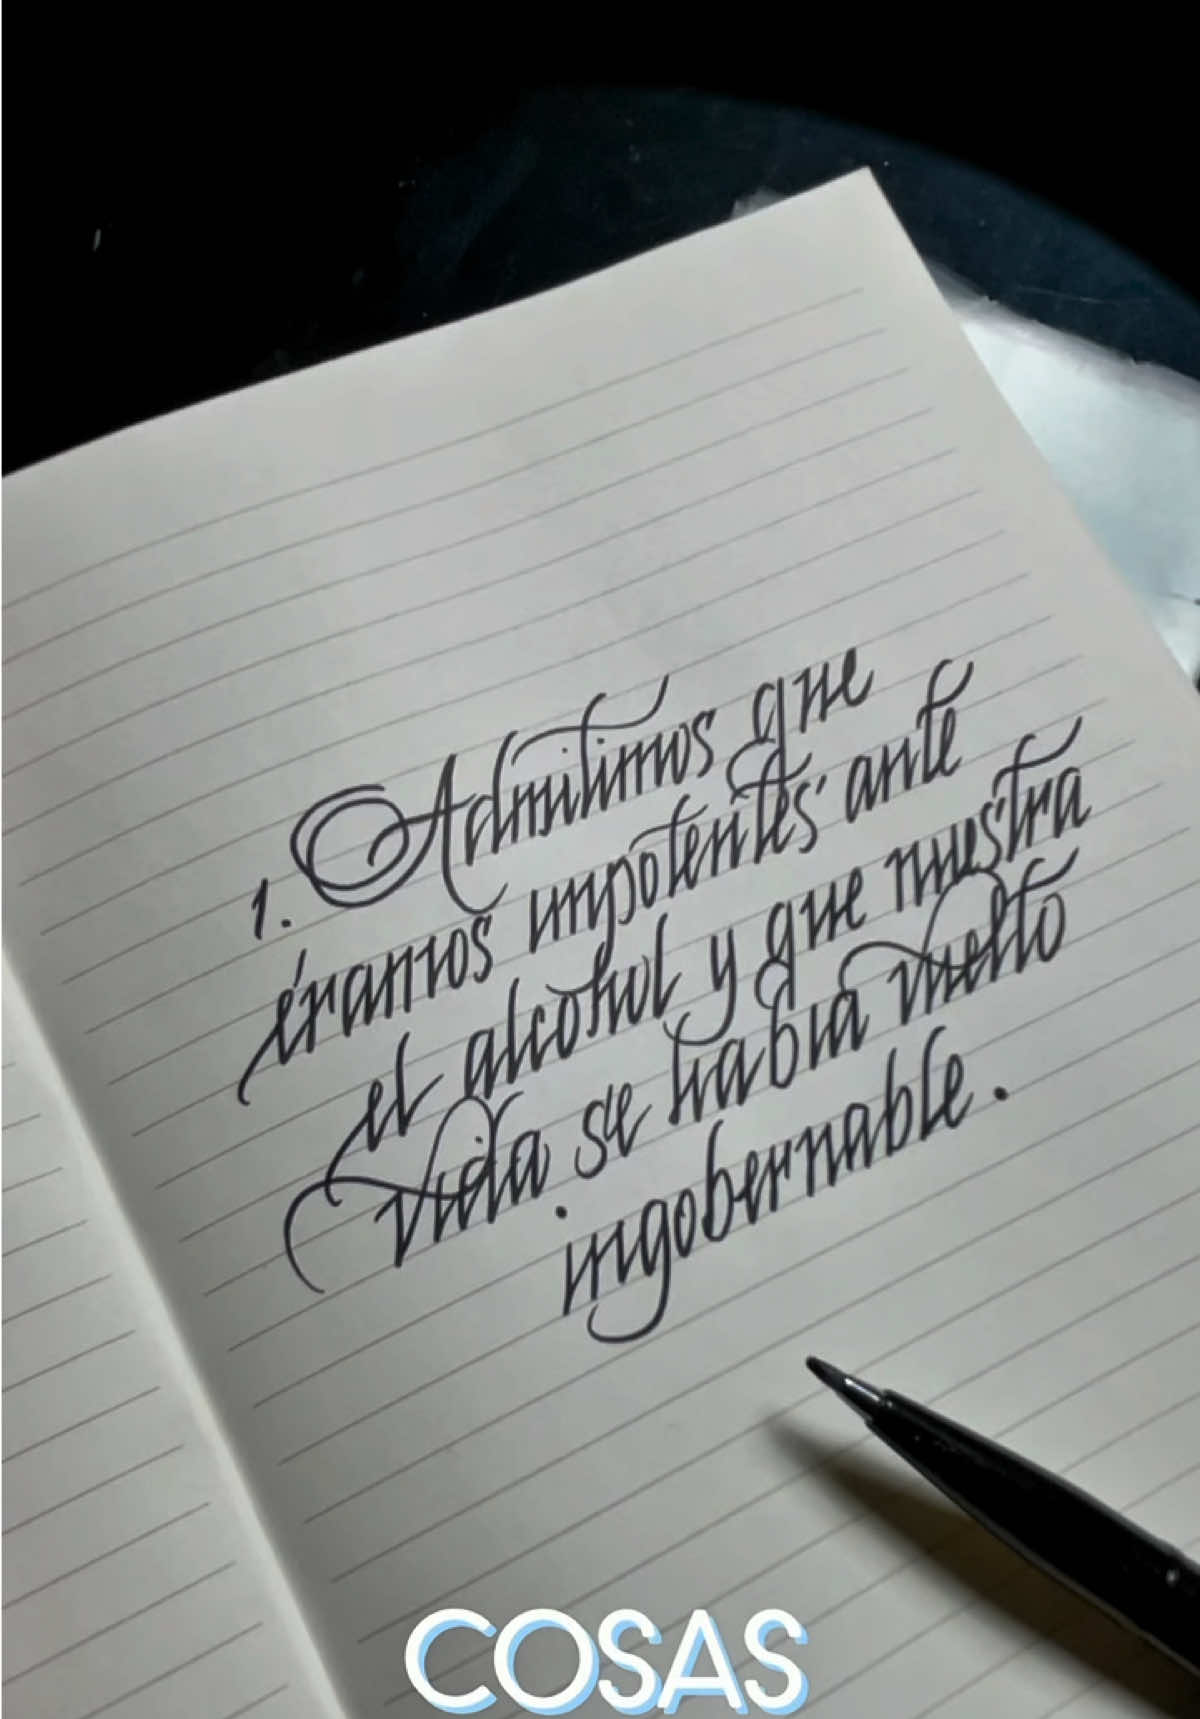 1. Admitimos que
éramos impotentes ante
el alcohol y que nuestra
vida se había vuelto
ingobernable.
COSAS